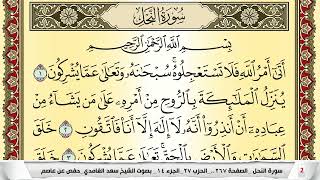 سُورَةُ النَّحْلِ
بِسْمِ اللَّهِ الرَّحْمَٰنِ الرَّحِيمِ
أَتَىٰ أَمْرُ اللَّهِ فَلَا تَسْتَعْجِلُوهُ سُبْحَانَهُ وَتَعَالَىٰ عَمَّا يُشْرِكُونَ ١
يُنَزِّلُ الْمَلَائِكَةَ بِالرُّوحِ مِنْ أَمْرِهِ عَلَىٰ مَن يَشَاءُ مِنْ
عِبَادِهِ أَنْ أَنذِرُوا أَنَّهُ لَا إِلَٰهَ إِلَّا أَنَا فَاتَّقُونِ ٢ خَلَقَ
السَّمَاوَاتِ وَالْأَرْضَ بِالْحَقِّ تَعَالَىٰ عَمَّا يُشْرِكُونَ ٣ خَلَقَ
2 سورة النحل . الصفحة ٢٦٧ . الحزب ٢٧ . الجزء ١٤ . بصوت الشيخ سعد الغامدي . حفص عن عاصم